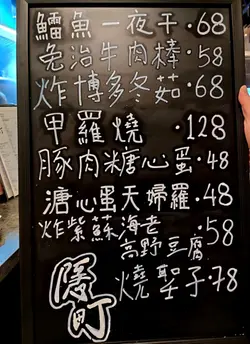 鱈魚一夜干·68
免治牛肉棒·58
炸博多冬菇·68
甲羅燒·128
豚肉糖心蛋·48
溏心蛋天婦羅·48
炸紫蘇海老
高野豆腐·58
燒墾子·78
隱町